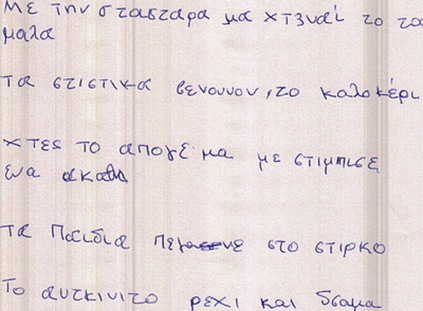 Με την σταςταρα μα χτενναί το τα
μαλα
τα στιστικα βενουνον, το καλοκέρι
χτες το απογέμα με στιμπισε
ενα ακαθι
τα Παιδια πεγαινε στο στιρκο
Το αυτκινιτο ρεχι και δσαμα